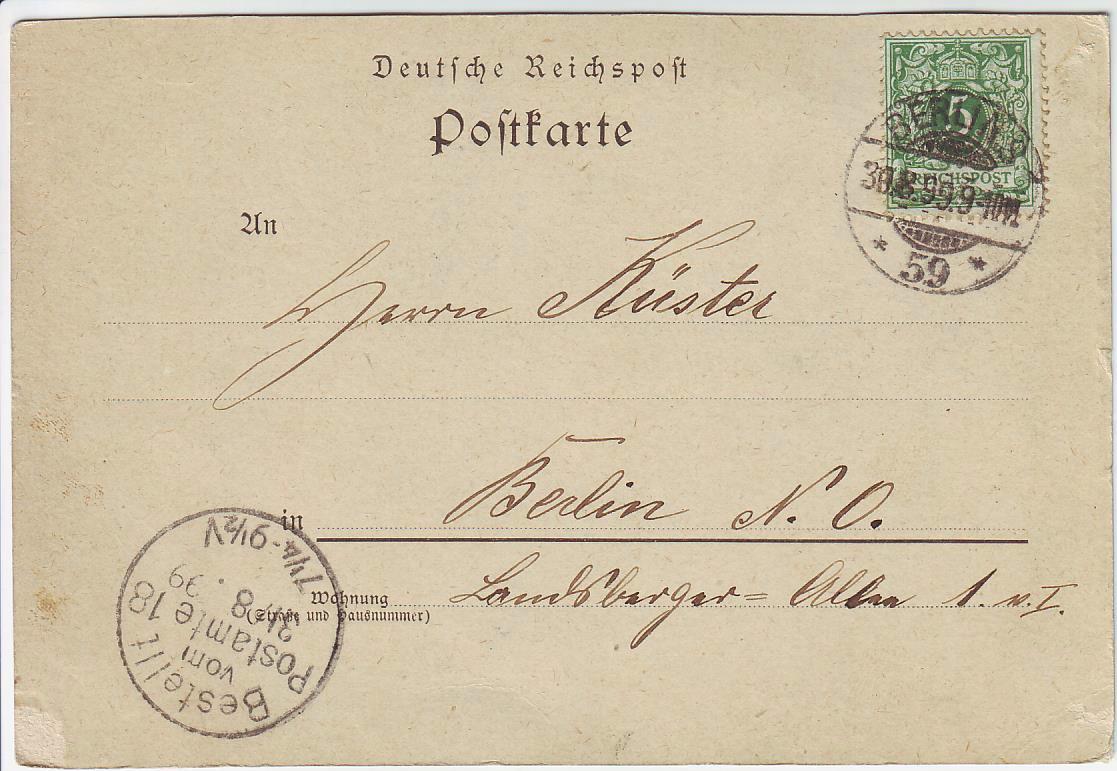 Deutsche Reichspost
Postkarte
5
REICHSPOST
BERLIN
30.8.99.9-10N.
* 59 *
An
Herrn Küster
in Berlin N. O.
Wohnung
(Straße und Hausnummer)
Landsberger= Allee 1. v. I.
Bestellt
vom
Postamte 18
31/8 . 99
7¼-9½V